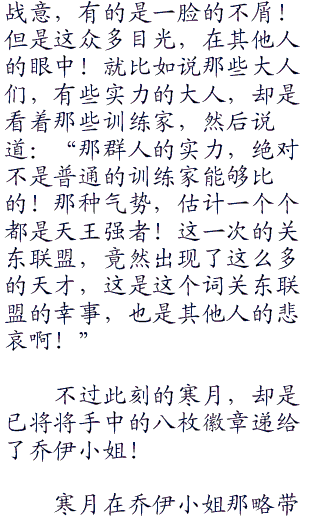 战意，有的是一脸的不屑！
但是这众多目光，在其他人
的眼中！就比如说那些大人
们，有些实力的大人，却是
看着那些训练家，然后说
道：“那群人的实力，绝对
不是普通的训练家能够比
的！那种气势，估计一个个
都是天王强者！这一次的关
东联盟，竟然出现了这么多
的天才，这是这个词关东联
盟的幸事，也是其他人的悲
哀啊！”
不过此刻的寒月，却是
已将将手中的八枚徽章递给
了乔伊小姐！
寒月在乔伊小姐那略带